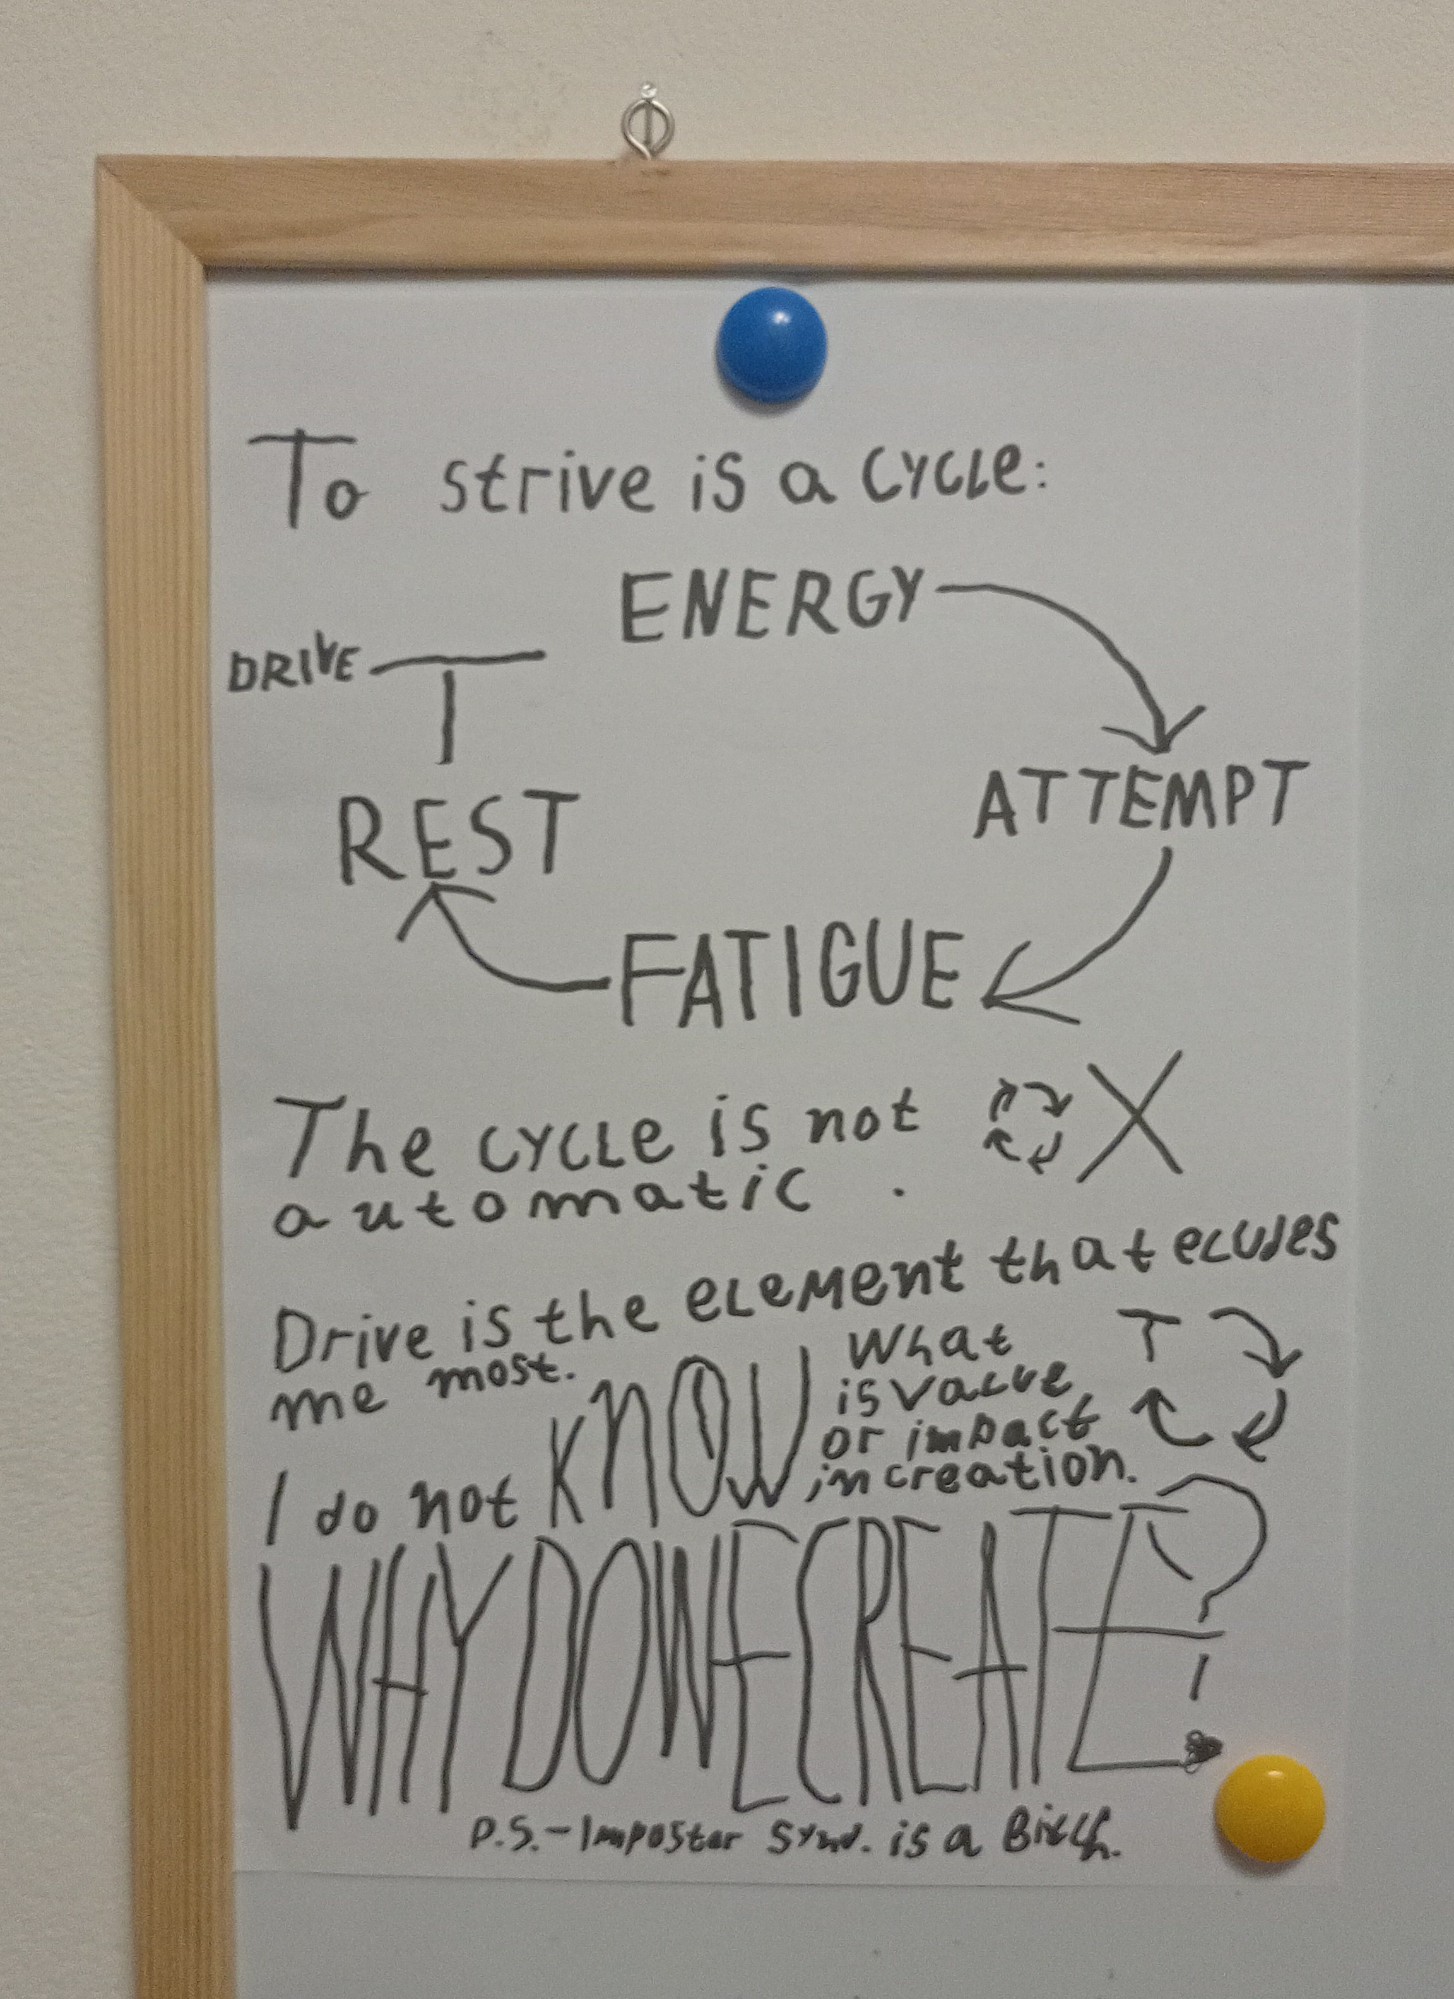 To strive is a cycle:
ENERGY
DRIVE
REST
ATTEMPT
FATIGUE
The cycle is not
automatic.
Drive is the element that ecludes
me most.
I do not KNOW What
is value
or impact
in creation.
WHY DO WE CREATE?
P.S.-Imposter Synd. is a Bitch.